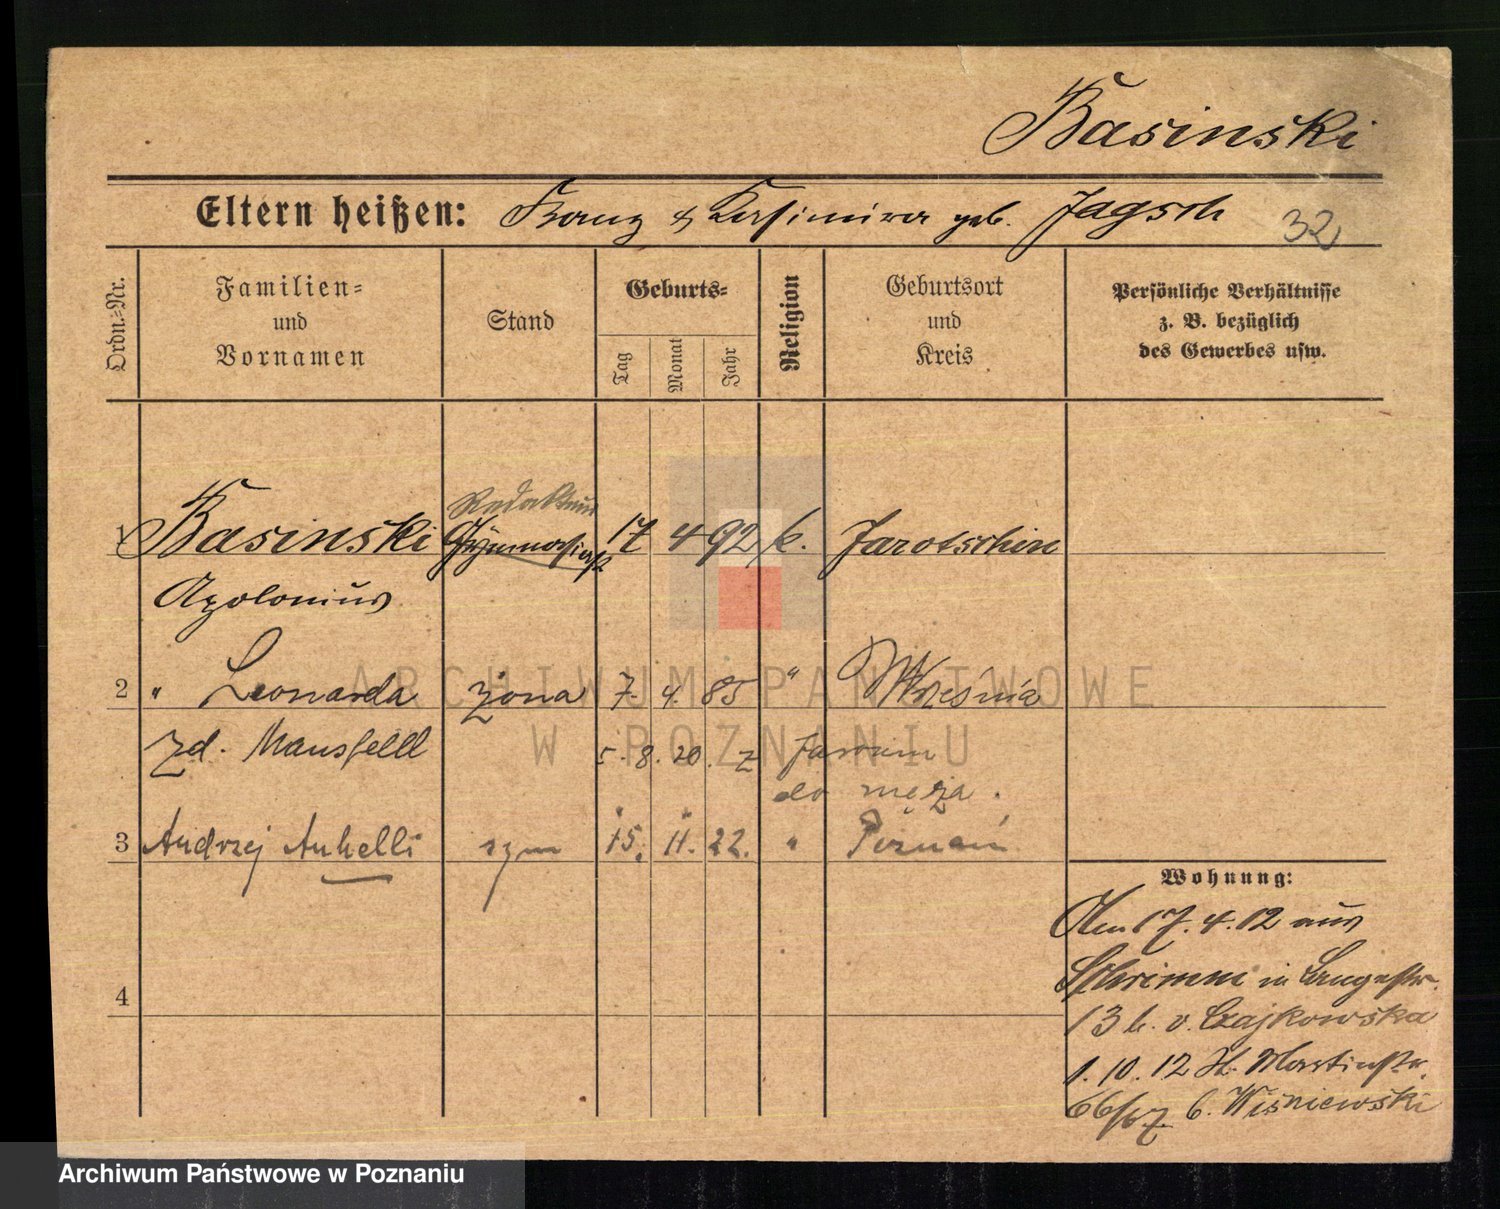 Basinski
Eltern heißen: Franz & Kasimira geb. Jagsch 32
Ordn.-Nr.
Familien-
und
Vornamen
Stand
Geburts-
Tag
Monat
Jahr
Religion
Geburtsort
und
Kreis
Persönliche Verhältnisse
z. B. bezüglich
des Gewerbes usw.
Redakteur
1 Basinski Gymnasiast 17 4 92 k. Jarotschin
Apolonius
2 " Leonarda żona 7. 4. 85 " Września
zd. Mansfeld 5. 8. 20. z
do męża.
3 Andrzej Anhelli syn 15. 11. 22. " Poznań
4
Wohnung:
Am 17.4.12 aus
Schrimm in Langestr.
13 b. v. Czajkowska
1.10.12 St. Martinstr.
b. Wisniewski
ARCHIWUM PAŃSTWOWE
W POZNANIU
Archiwum Państwowe w Poznaniu